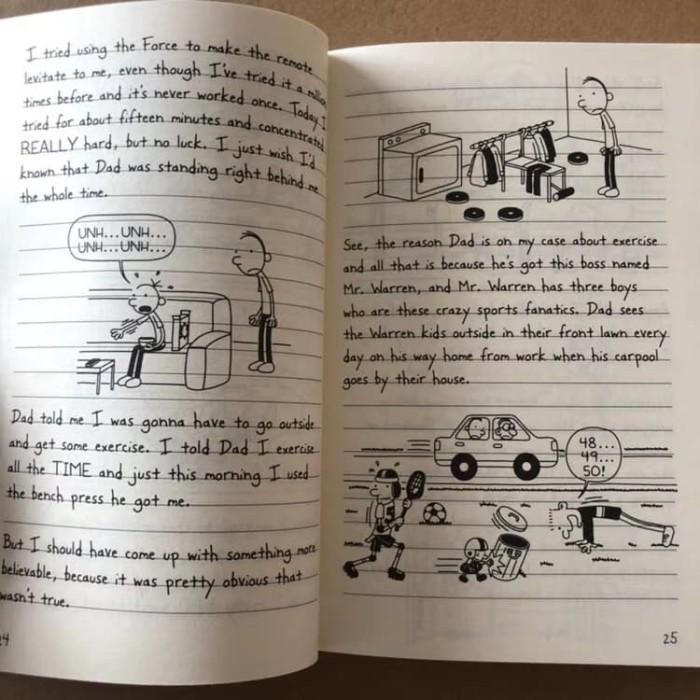 I tried using the Force to make the remote
levitate to me, even though I've tried it a million
times before and it's never worked once. Today I
tried for about fifteen minutes and concentrated
REALLY hard, but no luck. I just wish I'd
known that Dad was standing right behind me
the whole time.
UNH...UNH...
UNH...UNH...
Dad told me I was gonna have to go outside
and get some exercise. I told Dad I exercise
all the TIME and just this morning I used
the bench press he got me.
But I should have come up with something more
believable, because it was pretty obvious that
wasn't true.
24
See, the reason Dad is on my case about exercise
and all that is because he's got this boss named
Mr. Warren, and Mr. Warren has three boys
who are these crazy sports fanatics. Dad sees
the Warren kids outside in their front lawn every
day on his way home from work when his carpool
goes by their house.
48...
49...
50!
25